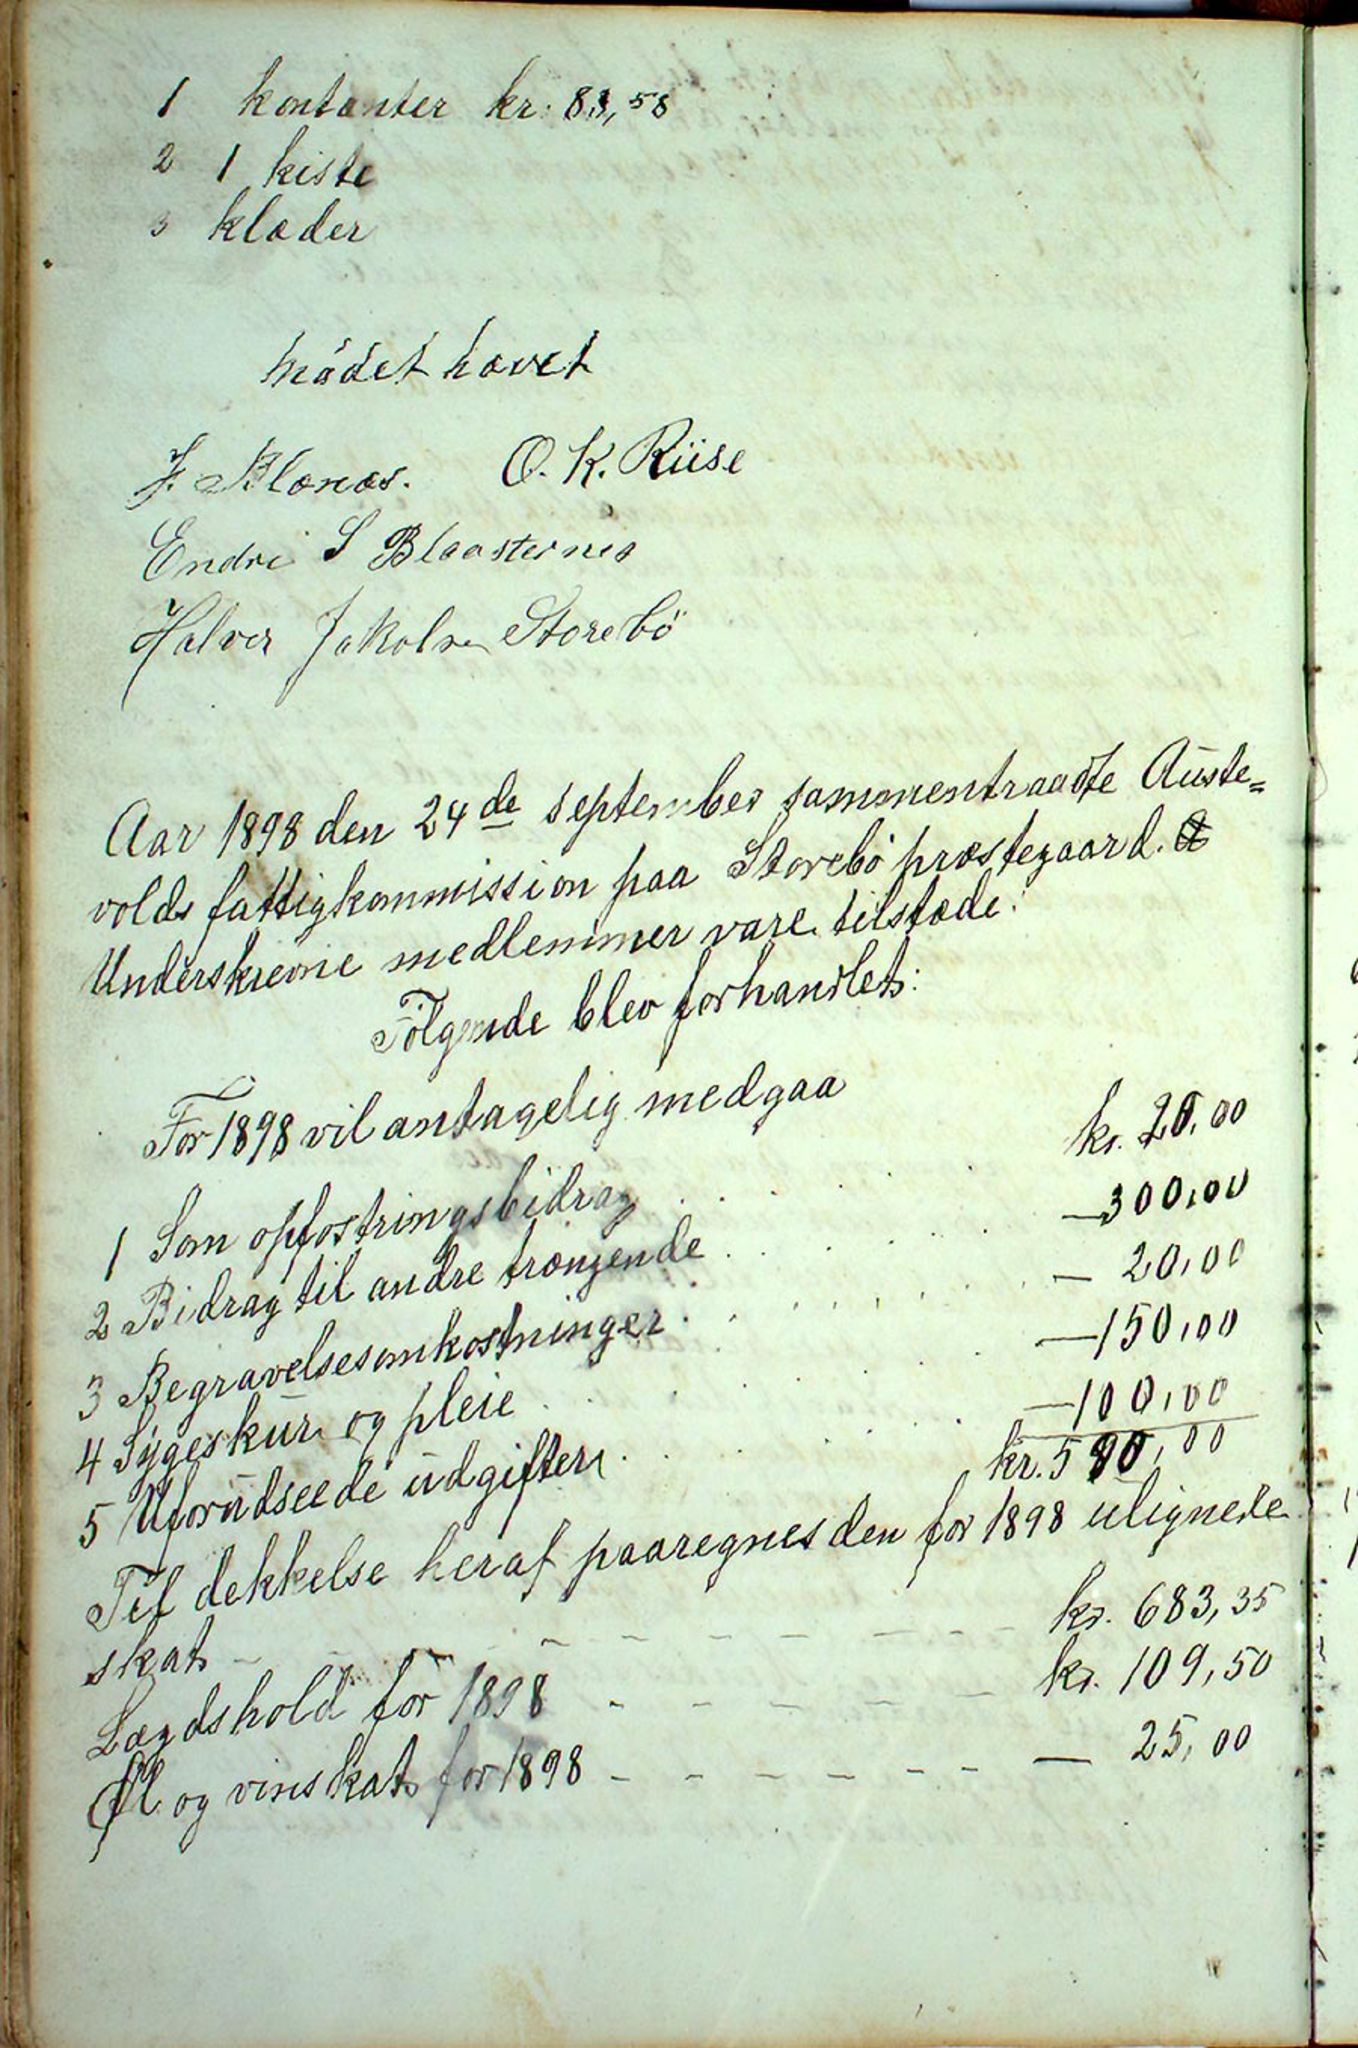 1 kontanter kr. 83,58
2 1 kiste
3 klæder
mödet hævet
J. Blænæs. O. K. Riise
Endre S Blaasternes
Halver Jakobsen Storebö
Aar 1898 den 24de september sammentraadte Auste=
volds fattigkommission paa Storebö præstegaard.
Underskrevne medlemmer vare tilstæde.
Fölgende blev forhandlet:
For 1898 vil antagelig medgaa
1 Som opfostringsbidrag . . . . kr. 20,00
2 Bidrag til andre trængende . . . . — 300,00
3 Begravelsesomkostninger . . . . — 20,00
4 Sygeskur og pleie . . . . — 150,00
5 Uforudseede udgifter . . . . — 100,00
kr. 590,00
Til dekkelse heraf paaregnes den for 1898 ulignede
skat - - - - kr. 683,35
Lægdshold for 1898 - - - kr. 109,50
Øl og vinskat for 1898 - - - - — 25,00